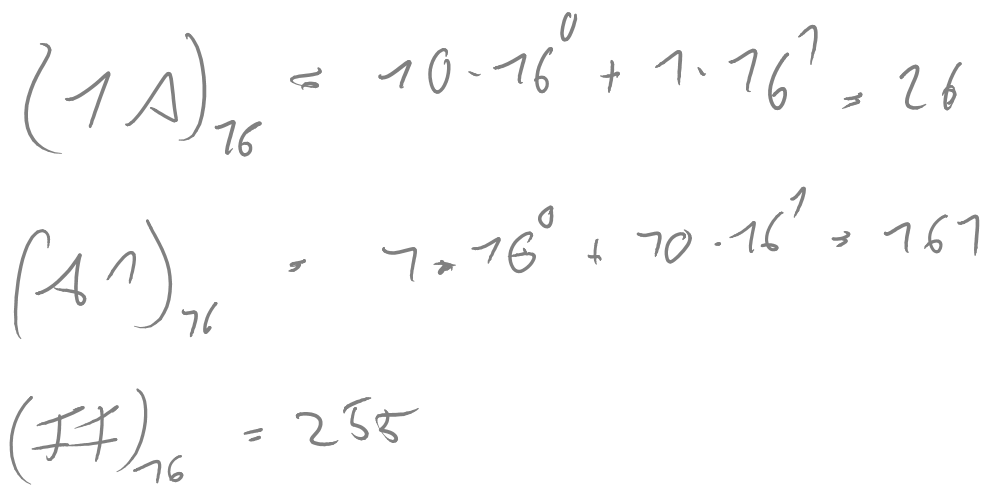 (1A)₁₆ = 10·16⁰ + 1·16¹ = 26
(A1)₁₆ = 1·16⁰ + 10·16¹ = 161
(FF)₁₆ = 255